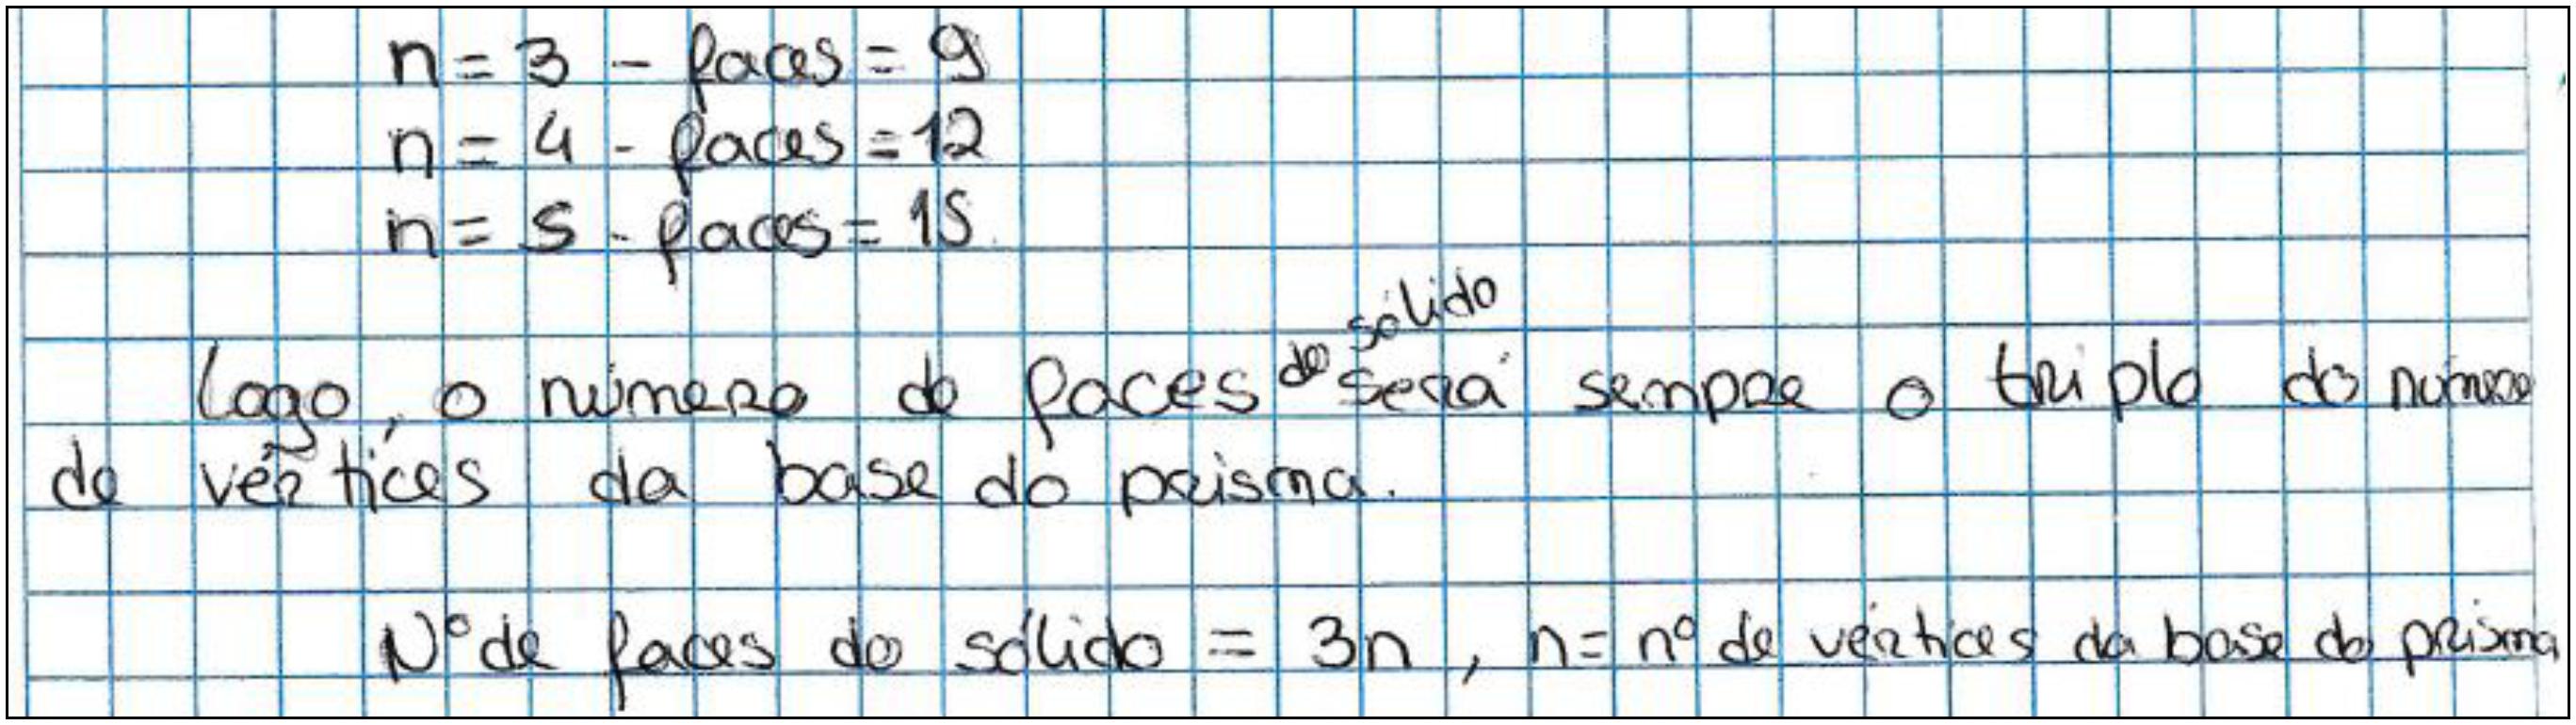 n = 3 - faces = 9
n = 4 - faces = 12
n = 5 - faces = 15
Logo, o número de faces do sólido será sempre o triplo do número
de vértices da base do prisma.
Nº de faces do sólido = 3n, n = nº de vértices da base do prisma